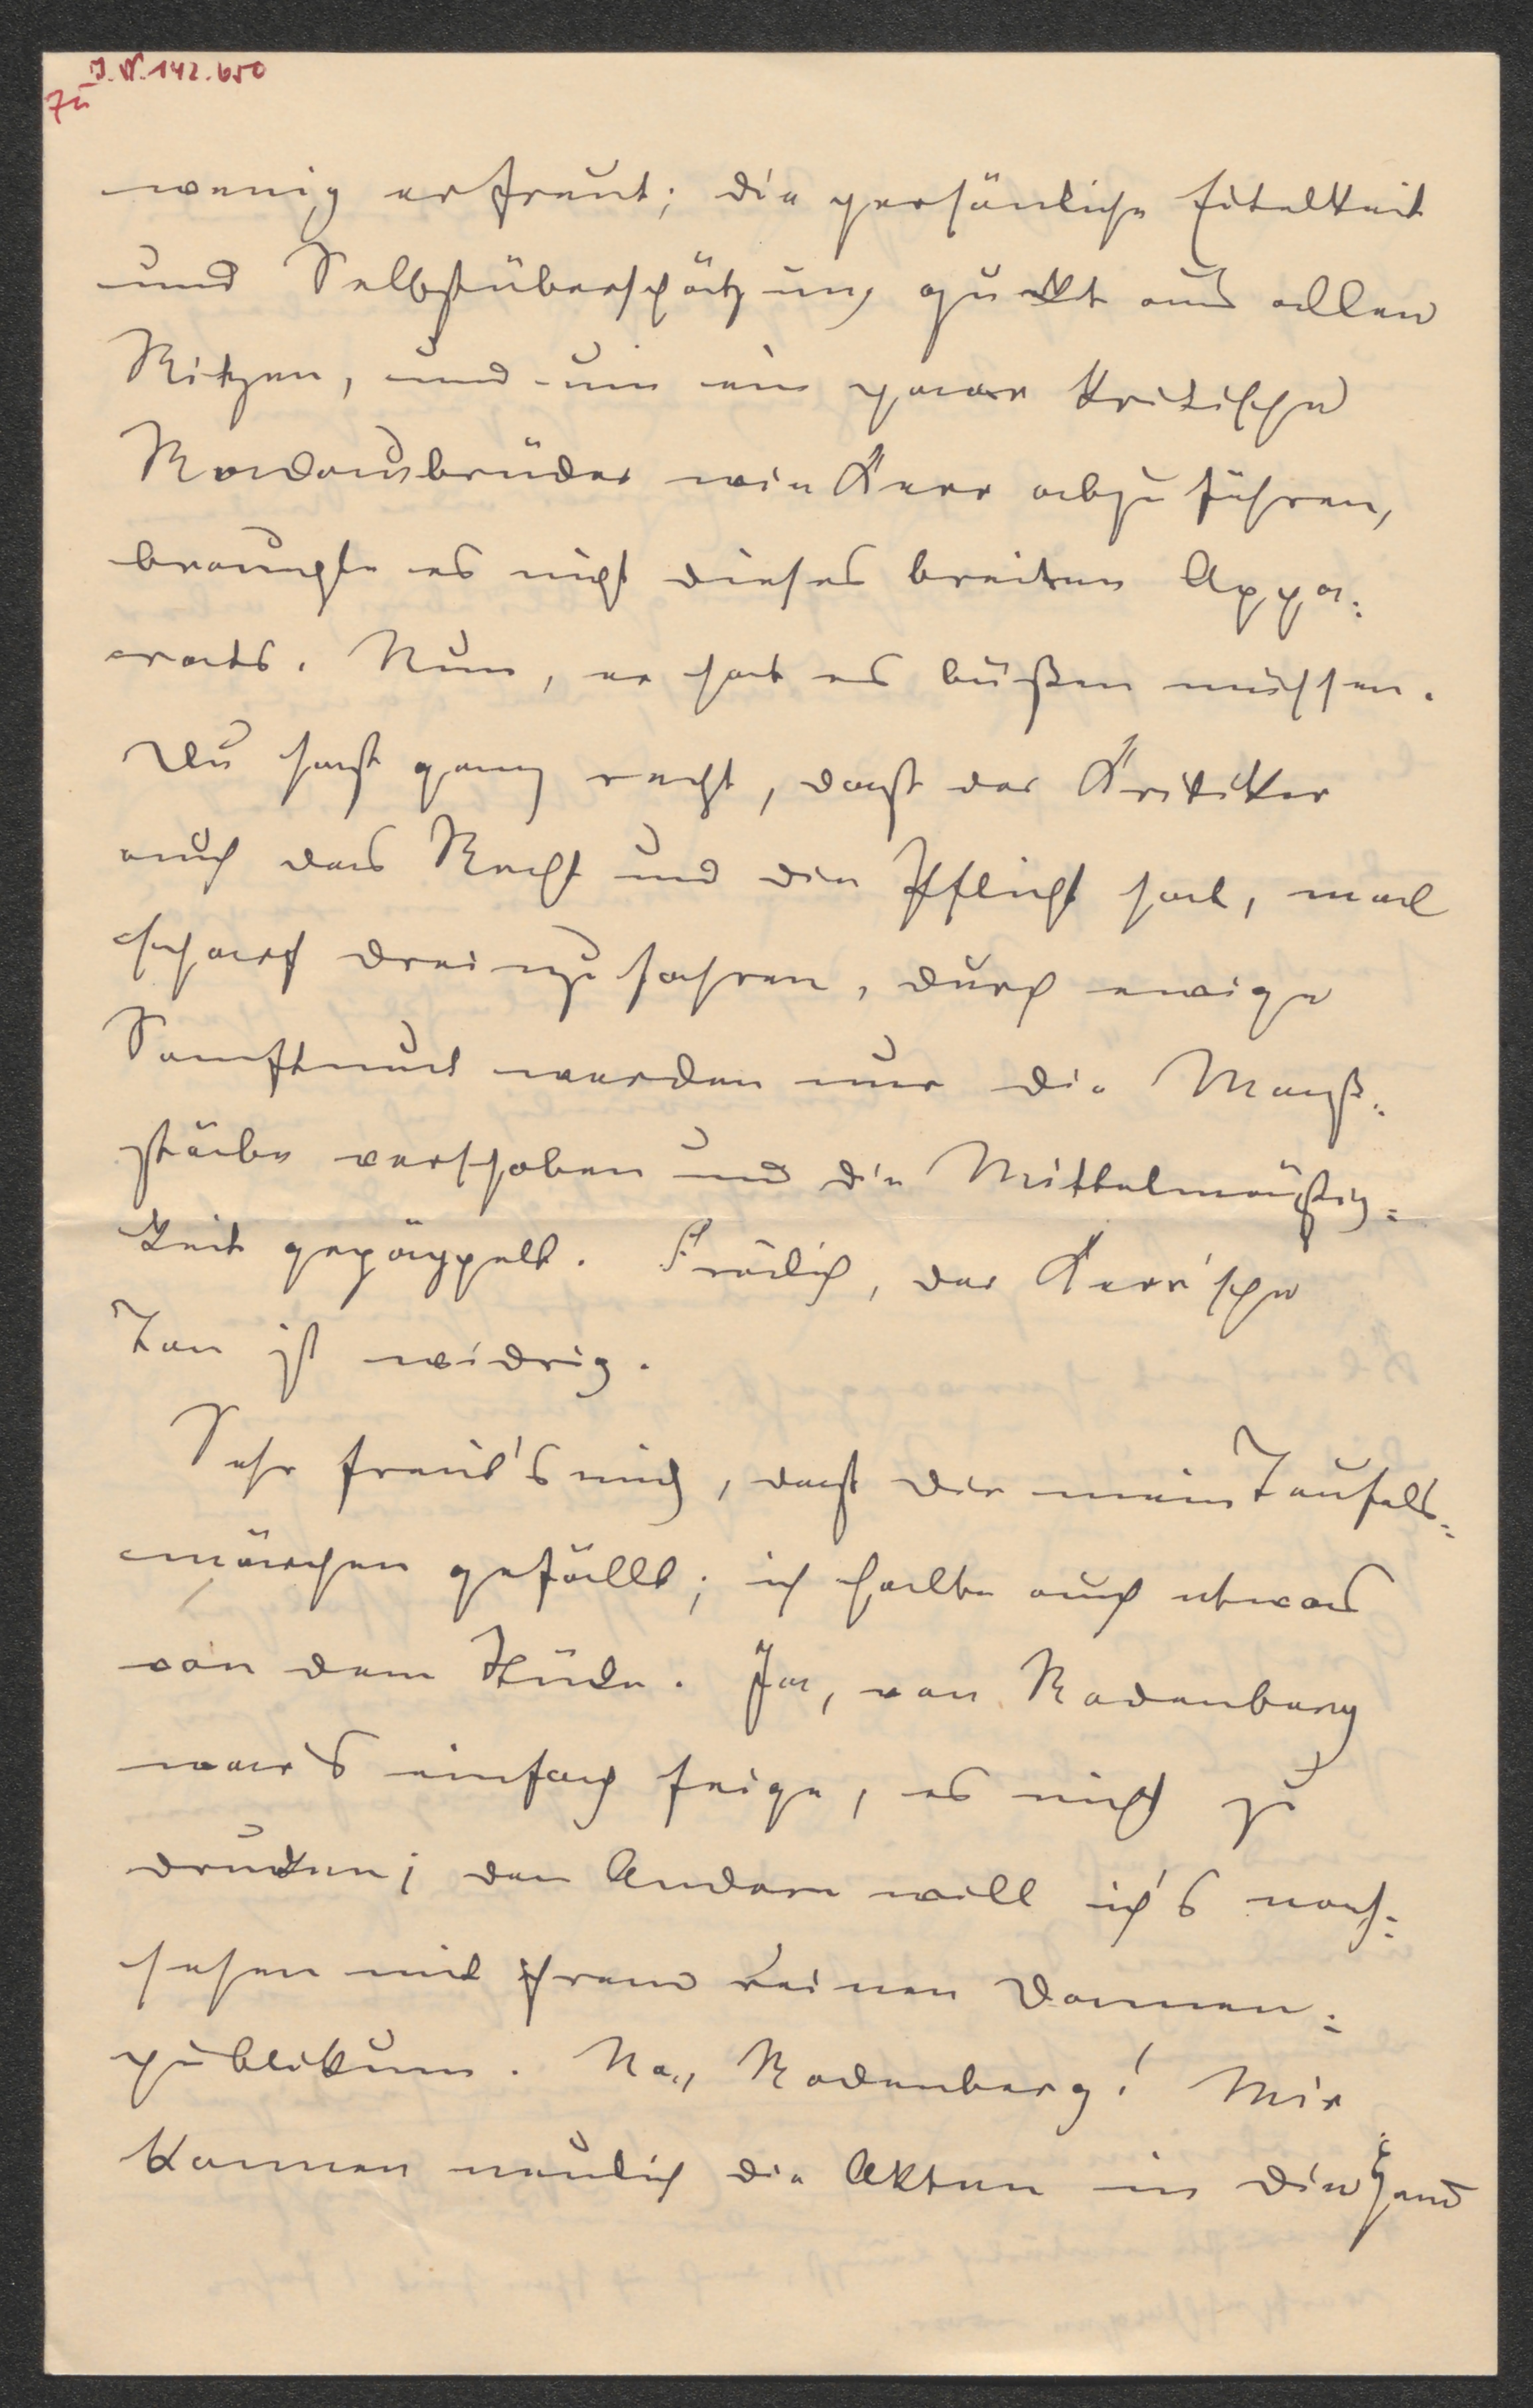 zu J.N. 142.650
wenig erfreut; die persönliche Eitelkeit
und Selbstüberschätzung guckt aus allen
Ritzen, und um ein paar kritische
Radaubrüder wie Kerr abzuführen,
brauchte es nicht dieses breiten Appa=
rats. Nun, er hat es büßen müssen.
Du hast ganz recht, daß der Kritiker
auch das Recht und die Pflicht hat, mal
scharf dreinzufahren, durch ewige
Sanftmut werden nur die Maaß=
stäbe verschoben und die Mittelmäßig=
keit gepäppelt. Freilich, der Kerr'sche
Ton ist widrig.
Sehr freut's mich, daß Dir mein Teufels=
märchen gefällt; ich halte auch etwas
von dem Stücke. Ja, von Rodenberg
war's einfach feige, es nicht zu
drucken; den Andern will ich's nach=
sehen mit ihrem reinen Damen=
publikum. Na, Rodenberg! Mir
kamen neulich die Akten in die Hand